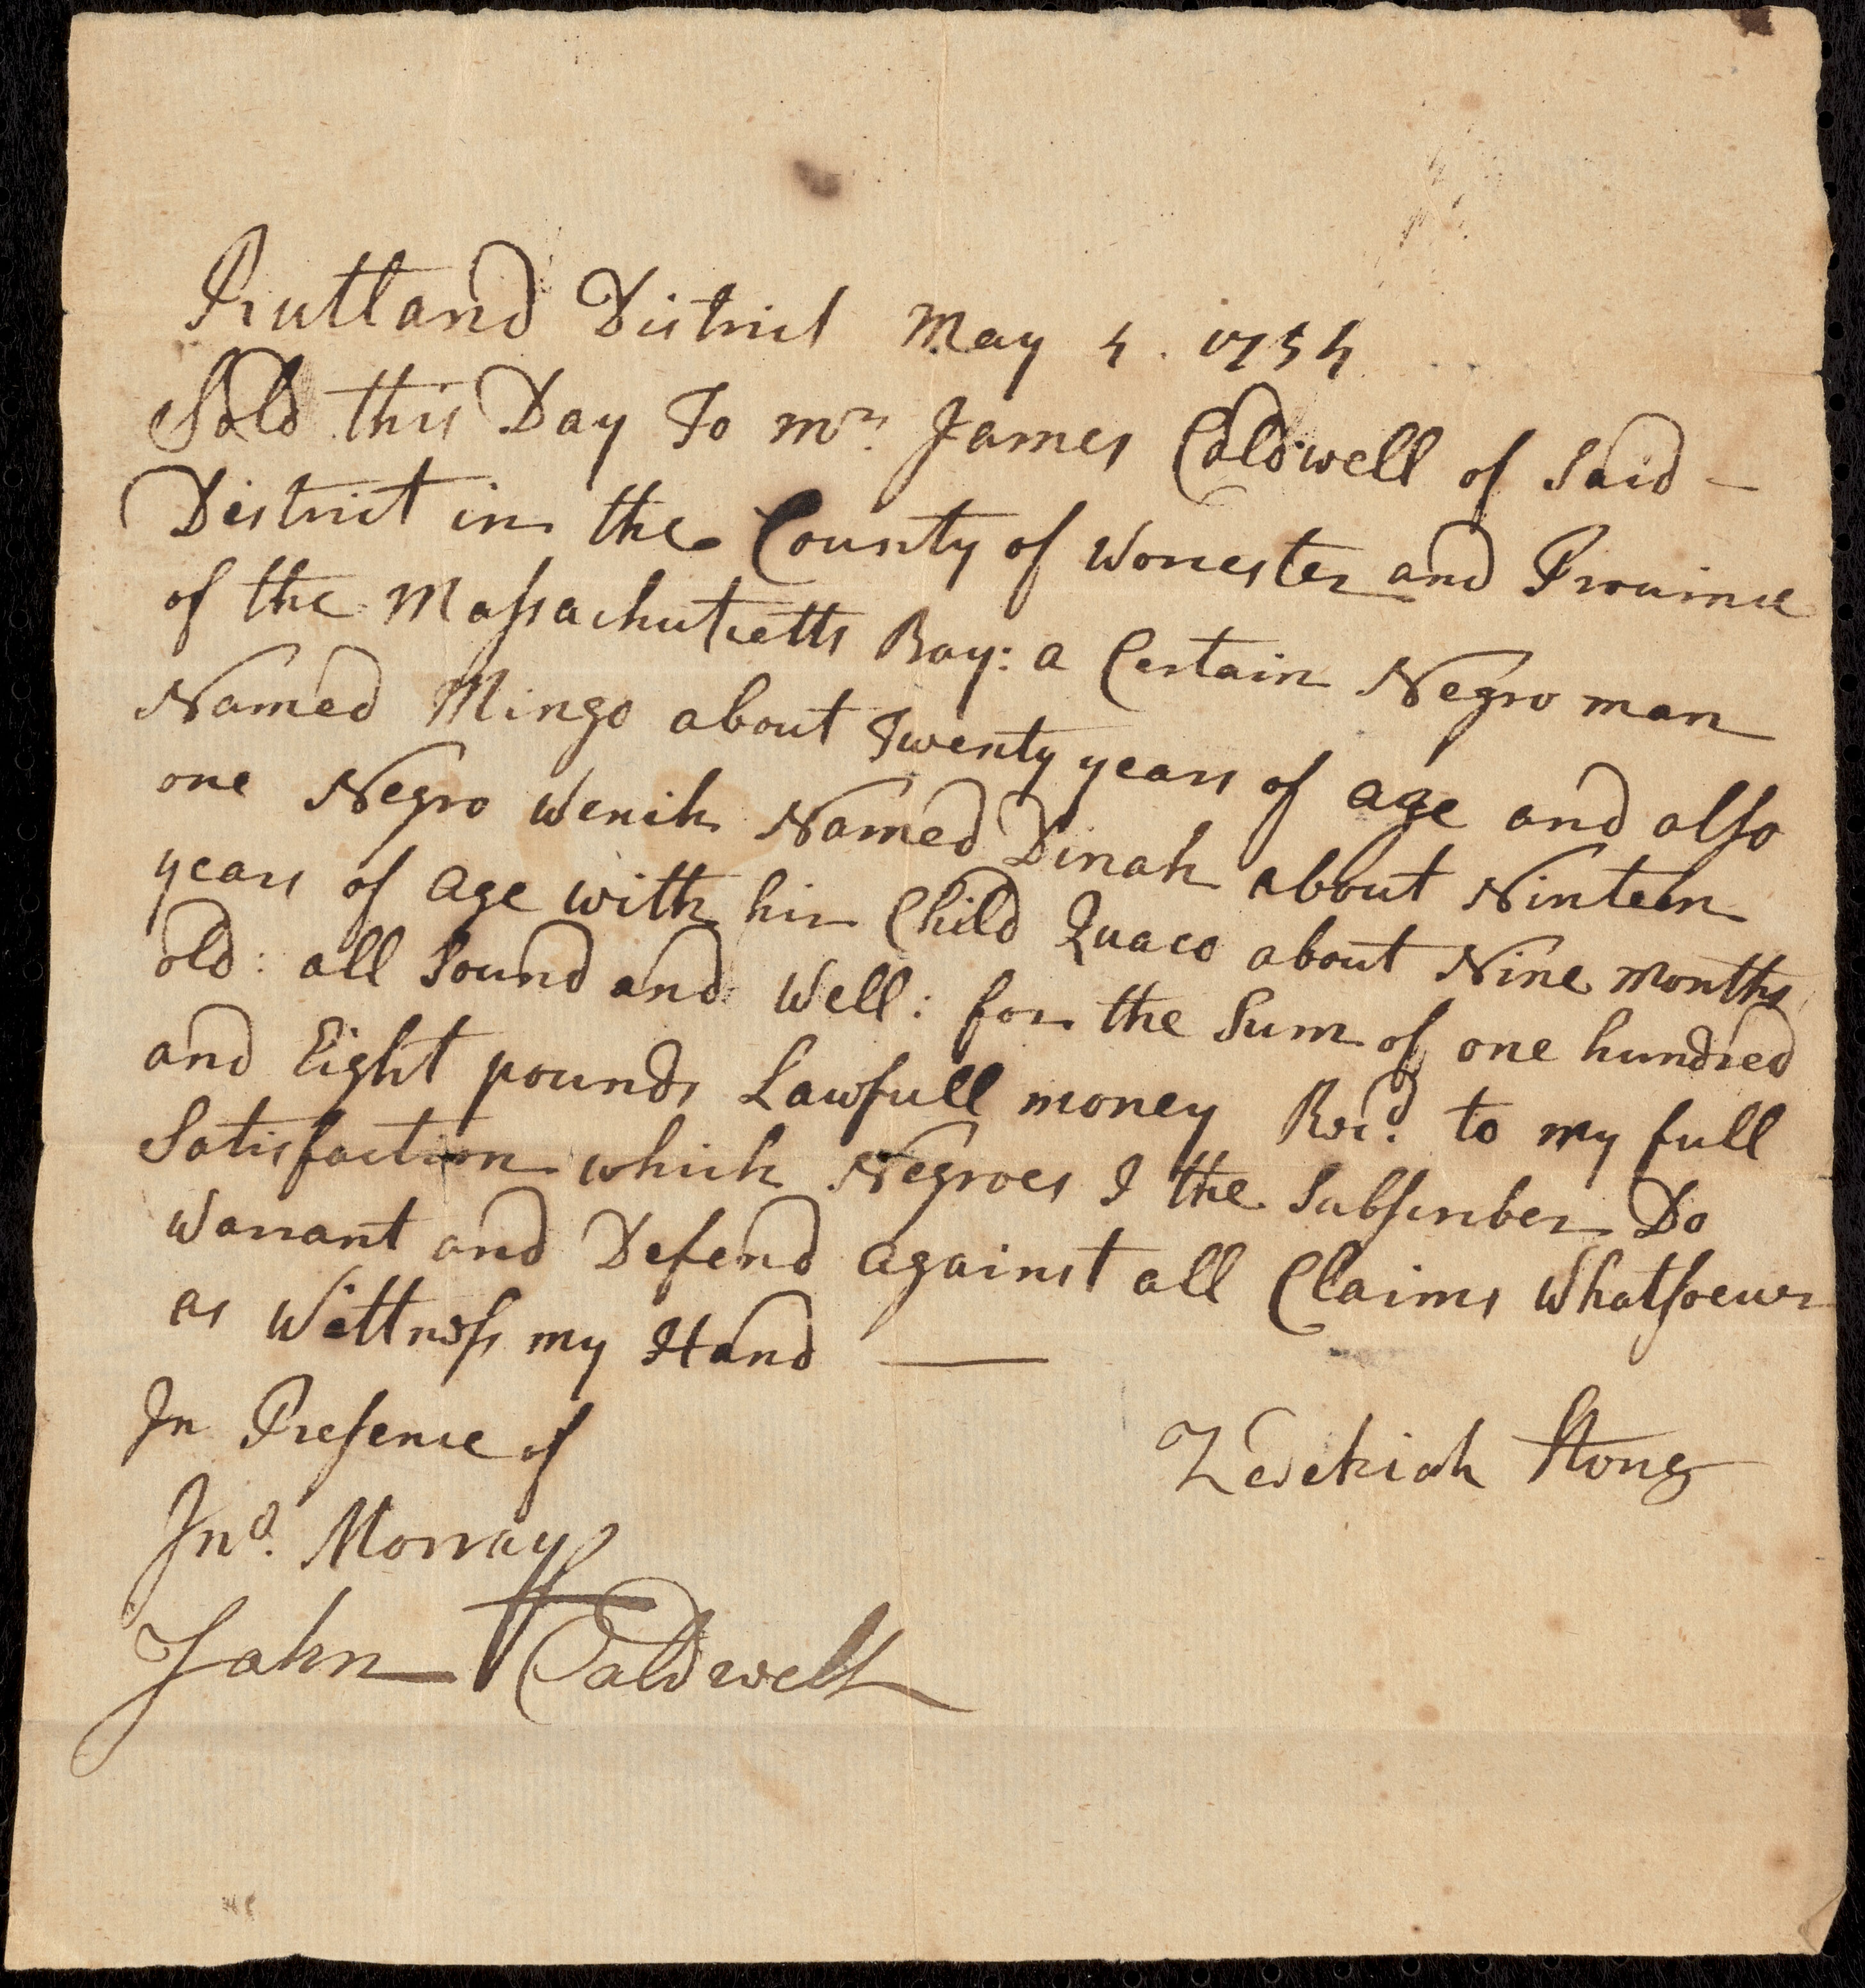 Rutland District May 4. 1754
Sold this Day To mr. James Caldwell of Said –
District in the County of Worcester and Province
of the Massachusetts Bay: a Certain Negro man
Named Mingo about Twenty years of age and also
one Negro Wench Named Dinah about Ninteen
years of age with her Child Quaco about Nine months
old: all Sound and Well: for the Sum of one hundred
and Eight pounds Lawfull money Recd. to my full
Satisfaction which Negroes I the Subscriber Do
Warrant and Defend against all Claims Whatsoever
as Wittness my Hand —
In Presence of
Zedekiah Stone
Jno. Morray
John Caldwell